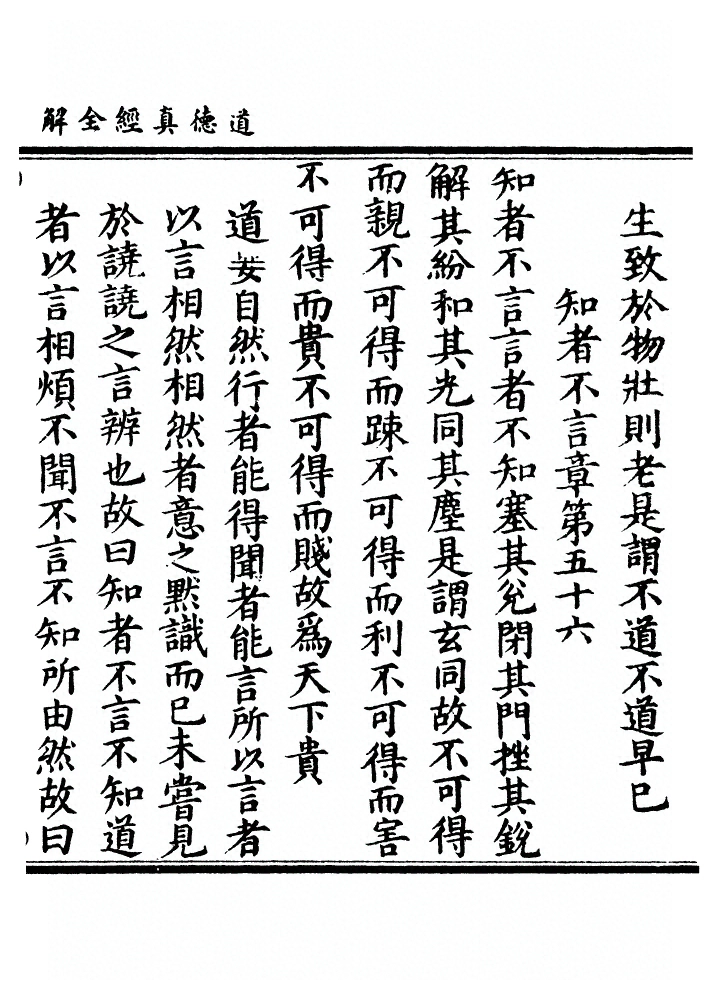 道德真經全解
生致於物壯則老是謂不道不道早已
知者不言章第五十六
知者不言言者不知塞其兊閉其門挫其銳
解其紛和其光同其塵是謂玄同故不可得
而親不可得而踈不可得而利不可得而害
不可得而貴不可得而賤故為天下貴
道妄自然行者能得聞者能言所以言者
以言相然相然者意之默識而已未嘗見
於譊譊之言辨也故曰知者不言不知道
者以言相煩不聞不言不知所由然故曰